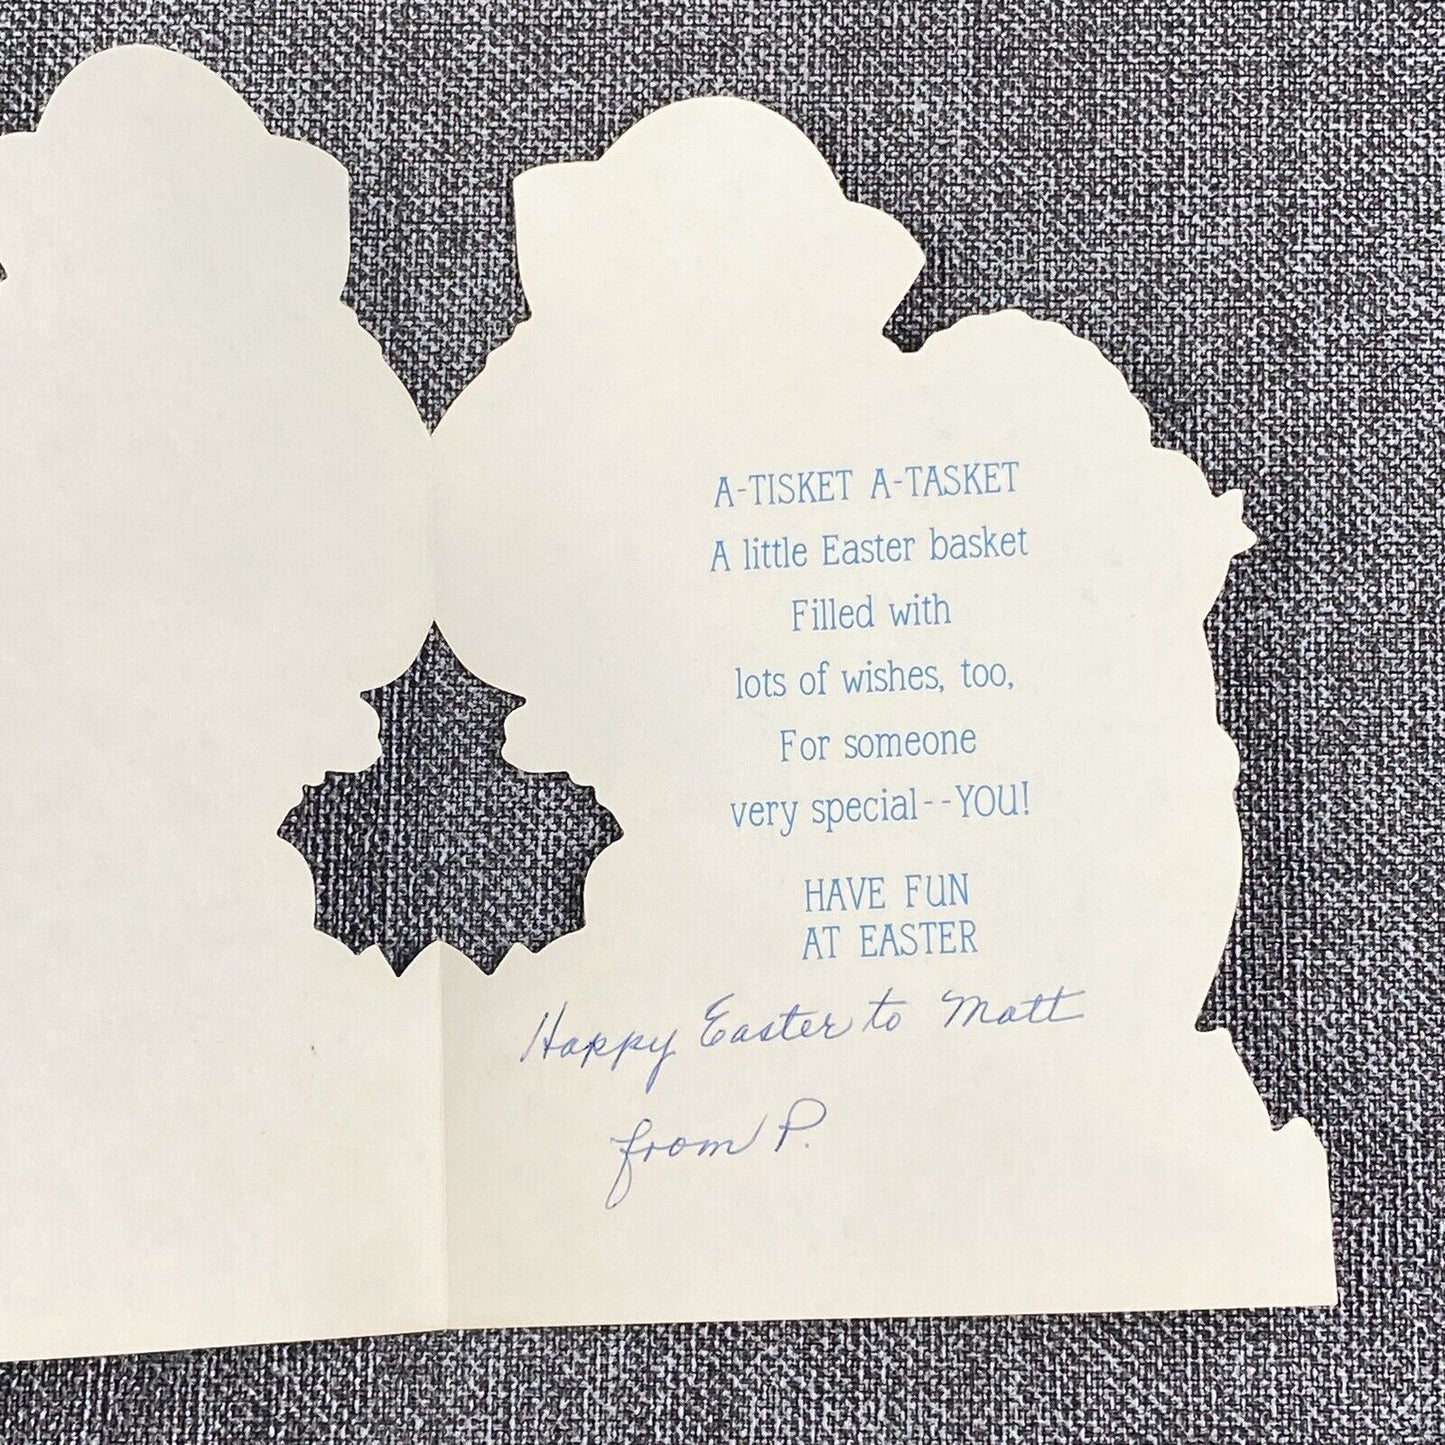 A-TISKET A-TASKET
A little Easter basket
Filled with
lots of wishes, too,
For someone
very special--YOU!
HAVE FUN
AT EASTER
Happy Easter to Matt
from P.